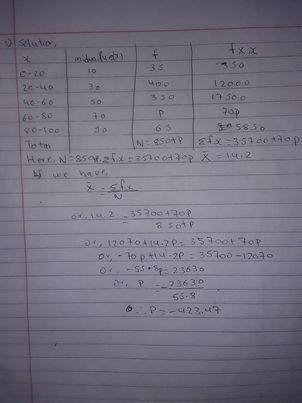 Solution,
x midvalue(x) f fxx
0-20 10 35 350
20-40 30 400 12000
40-60 50 350 17500
60-80 70 P 70p
80-100 90 65 5850
Total N=850+p Σfx=35700+70p
Here, N=850+p, Σfx=35700+70p X̄=14.2
we have,
x̄ = Σfx
N
or, 14.2 = 35700+70p
850+p
or, 12070+14.2p=35700+70p
or, -70p+14.2p=35700-12070
or, -55.8p=23630
or, p = -23630
55.8
∴ P=-423.47